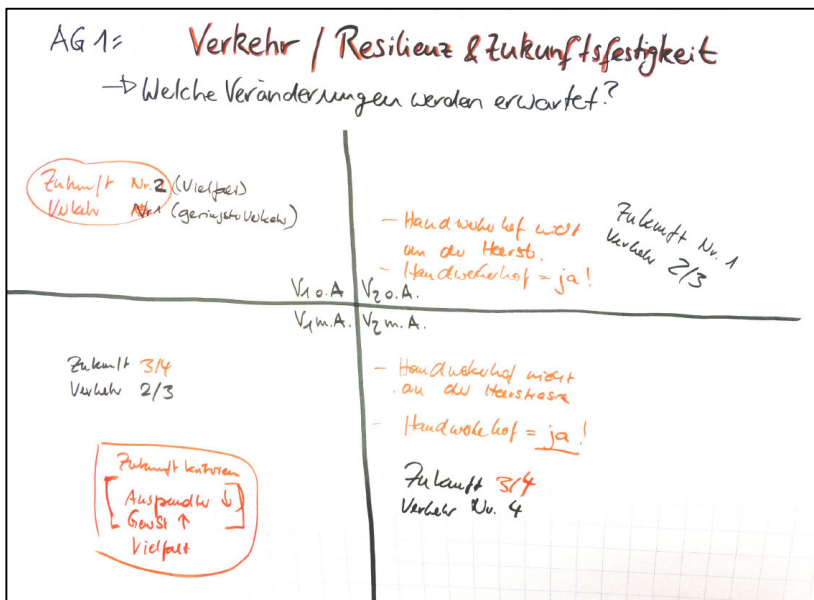 AG 1: Verkehr / Resilienz & Zukunftsfestigkeit
→ Welche Veränderungen werden erwartet?
Zukunft Nr. 2 (Vielfalt)
Verkehr Nr. 1 (geringster Verkehr)
- Handwerkerhof nicht
an der Heerstr.
- Handwerkerhof = ja!
Zukunft Nr. 1
Verkehr 2/3
V1 o. A
V2 o. A.
V1 m. A.
V2 m. A.
Zukunft 3/4
Verkehr 2/3
- Handwerkerhof nicht
an der Heerstrasse
- Handwerkerhof = ja!
Zukunft 3/4
Verkehr Nr. 4
Zukunft
Auspendler ↓
GewSt ↑
Vielfalt